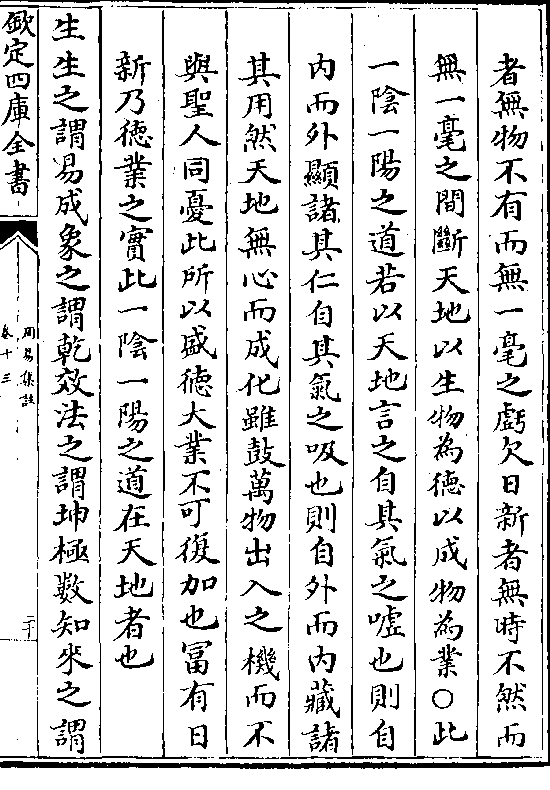 者無物不有而無一毫之虧欠日新者無時不然而
無一毫之間斷天地以生物為德以成物為業○此
一陰一陽之道若以天地言之自其氣之嘘也則自
内而外顯諸其仁自其氣之吸也則自外而内藏諸
其用然天地無心而成化雖鼓萬物出入之機而不
與聖人同憂此所以盛德大業不可復加也冨有日
新乃德業之實此一陰一陽之道在天地者也
生生之謂易成象之謂乾效法之謂坤極數知來之謂
欽定四庫全書
周易集註
卷十三
二十